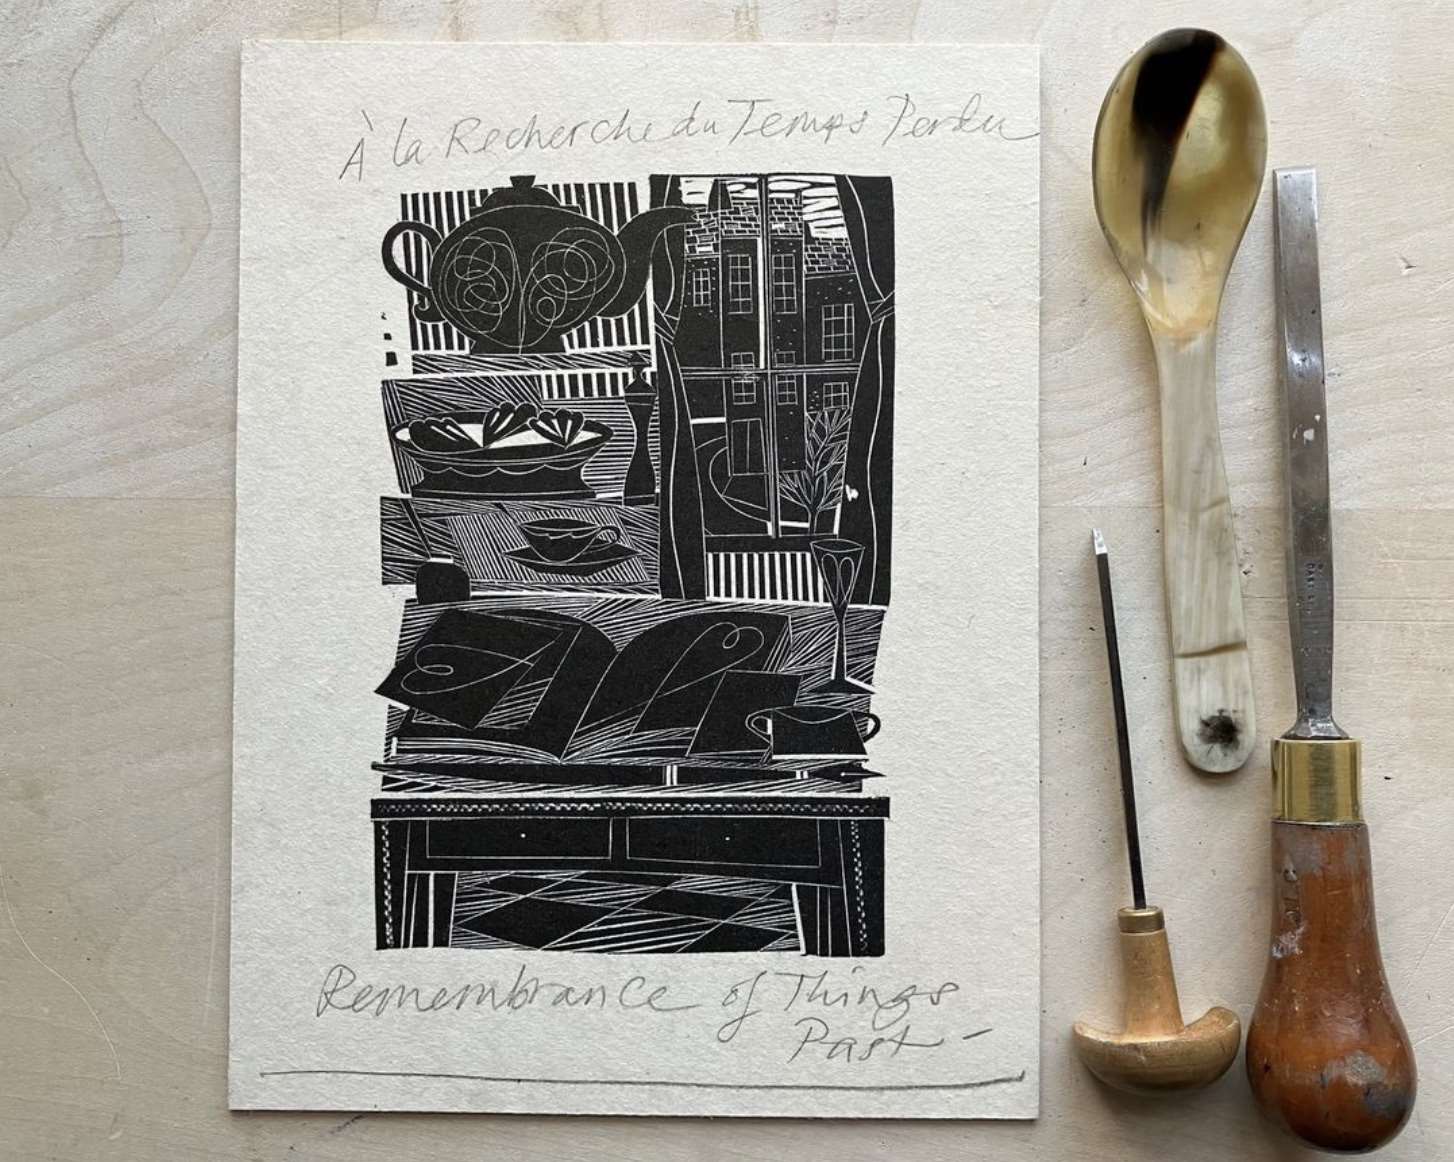 À la Recherche du Temps Perdu
Remembrance of Things
Past -